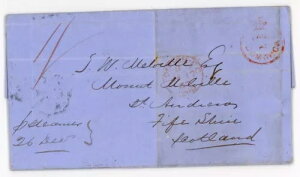 J. W. Melville Esq
Mount Melville
St Andrews
Fife Shire
Scotland
p Steamer
26 Decr